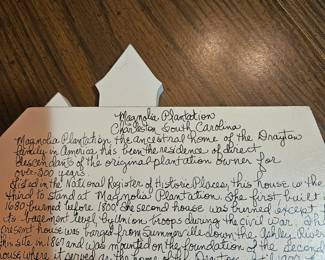 Magnolia Plantation
Charleston South Carolina
Magnolia Plantation the ancestral home of the Drayton
family in America, has been the residence of direct
descendants of the original plantation owner for
over 300 years.
Listed in the National Register of Historic Places, this house is the
third to stand at Magnolia Plantation. The first built
1680 burned before 1800. The second house was burned except
to basement level by Union troops during the Civil War. The
present house was barged from Summerville down the Ashley River
this site in 1867 and was mounted on the foundation of the second
house where it served as the home of